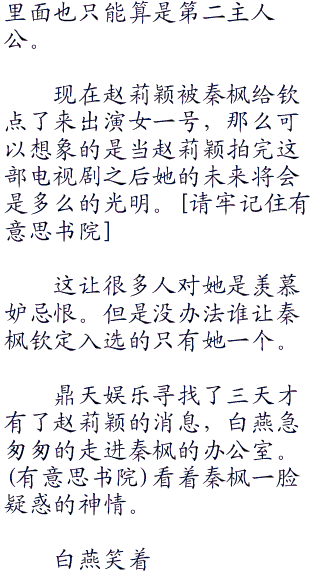 里面也只能算是第二主人
公。
现在赵莉颖被秦枫给钦
点了来出演女一号，那么可
以想象的是当赵莉颖拍完这
部电视剧之后她的未来将会
是多么的光明。[请牢记住有
意思书院]
这让很多人对她是羡慕
妒忌恨。但是没办法谁让秦
枫钦定入选的只有她一个。
鼎天娱乐寻找了三天才
有了赵莉颖的消息，白燕急
匆匆的走进秦枫的办公室。
(有意思书院)看着秦枫一脸
疑惑的神情。
白燕笑着